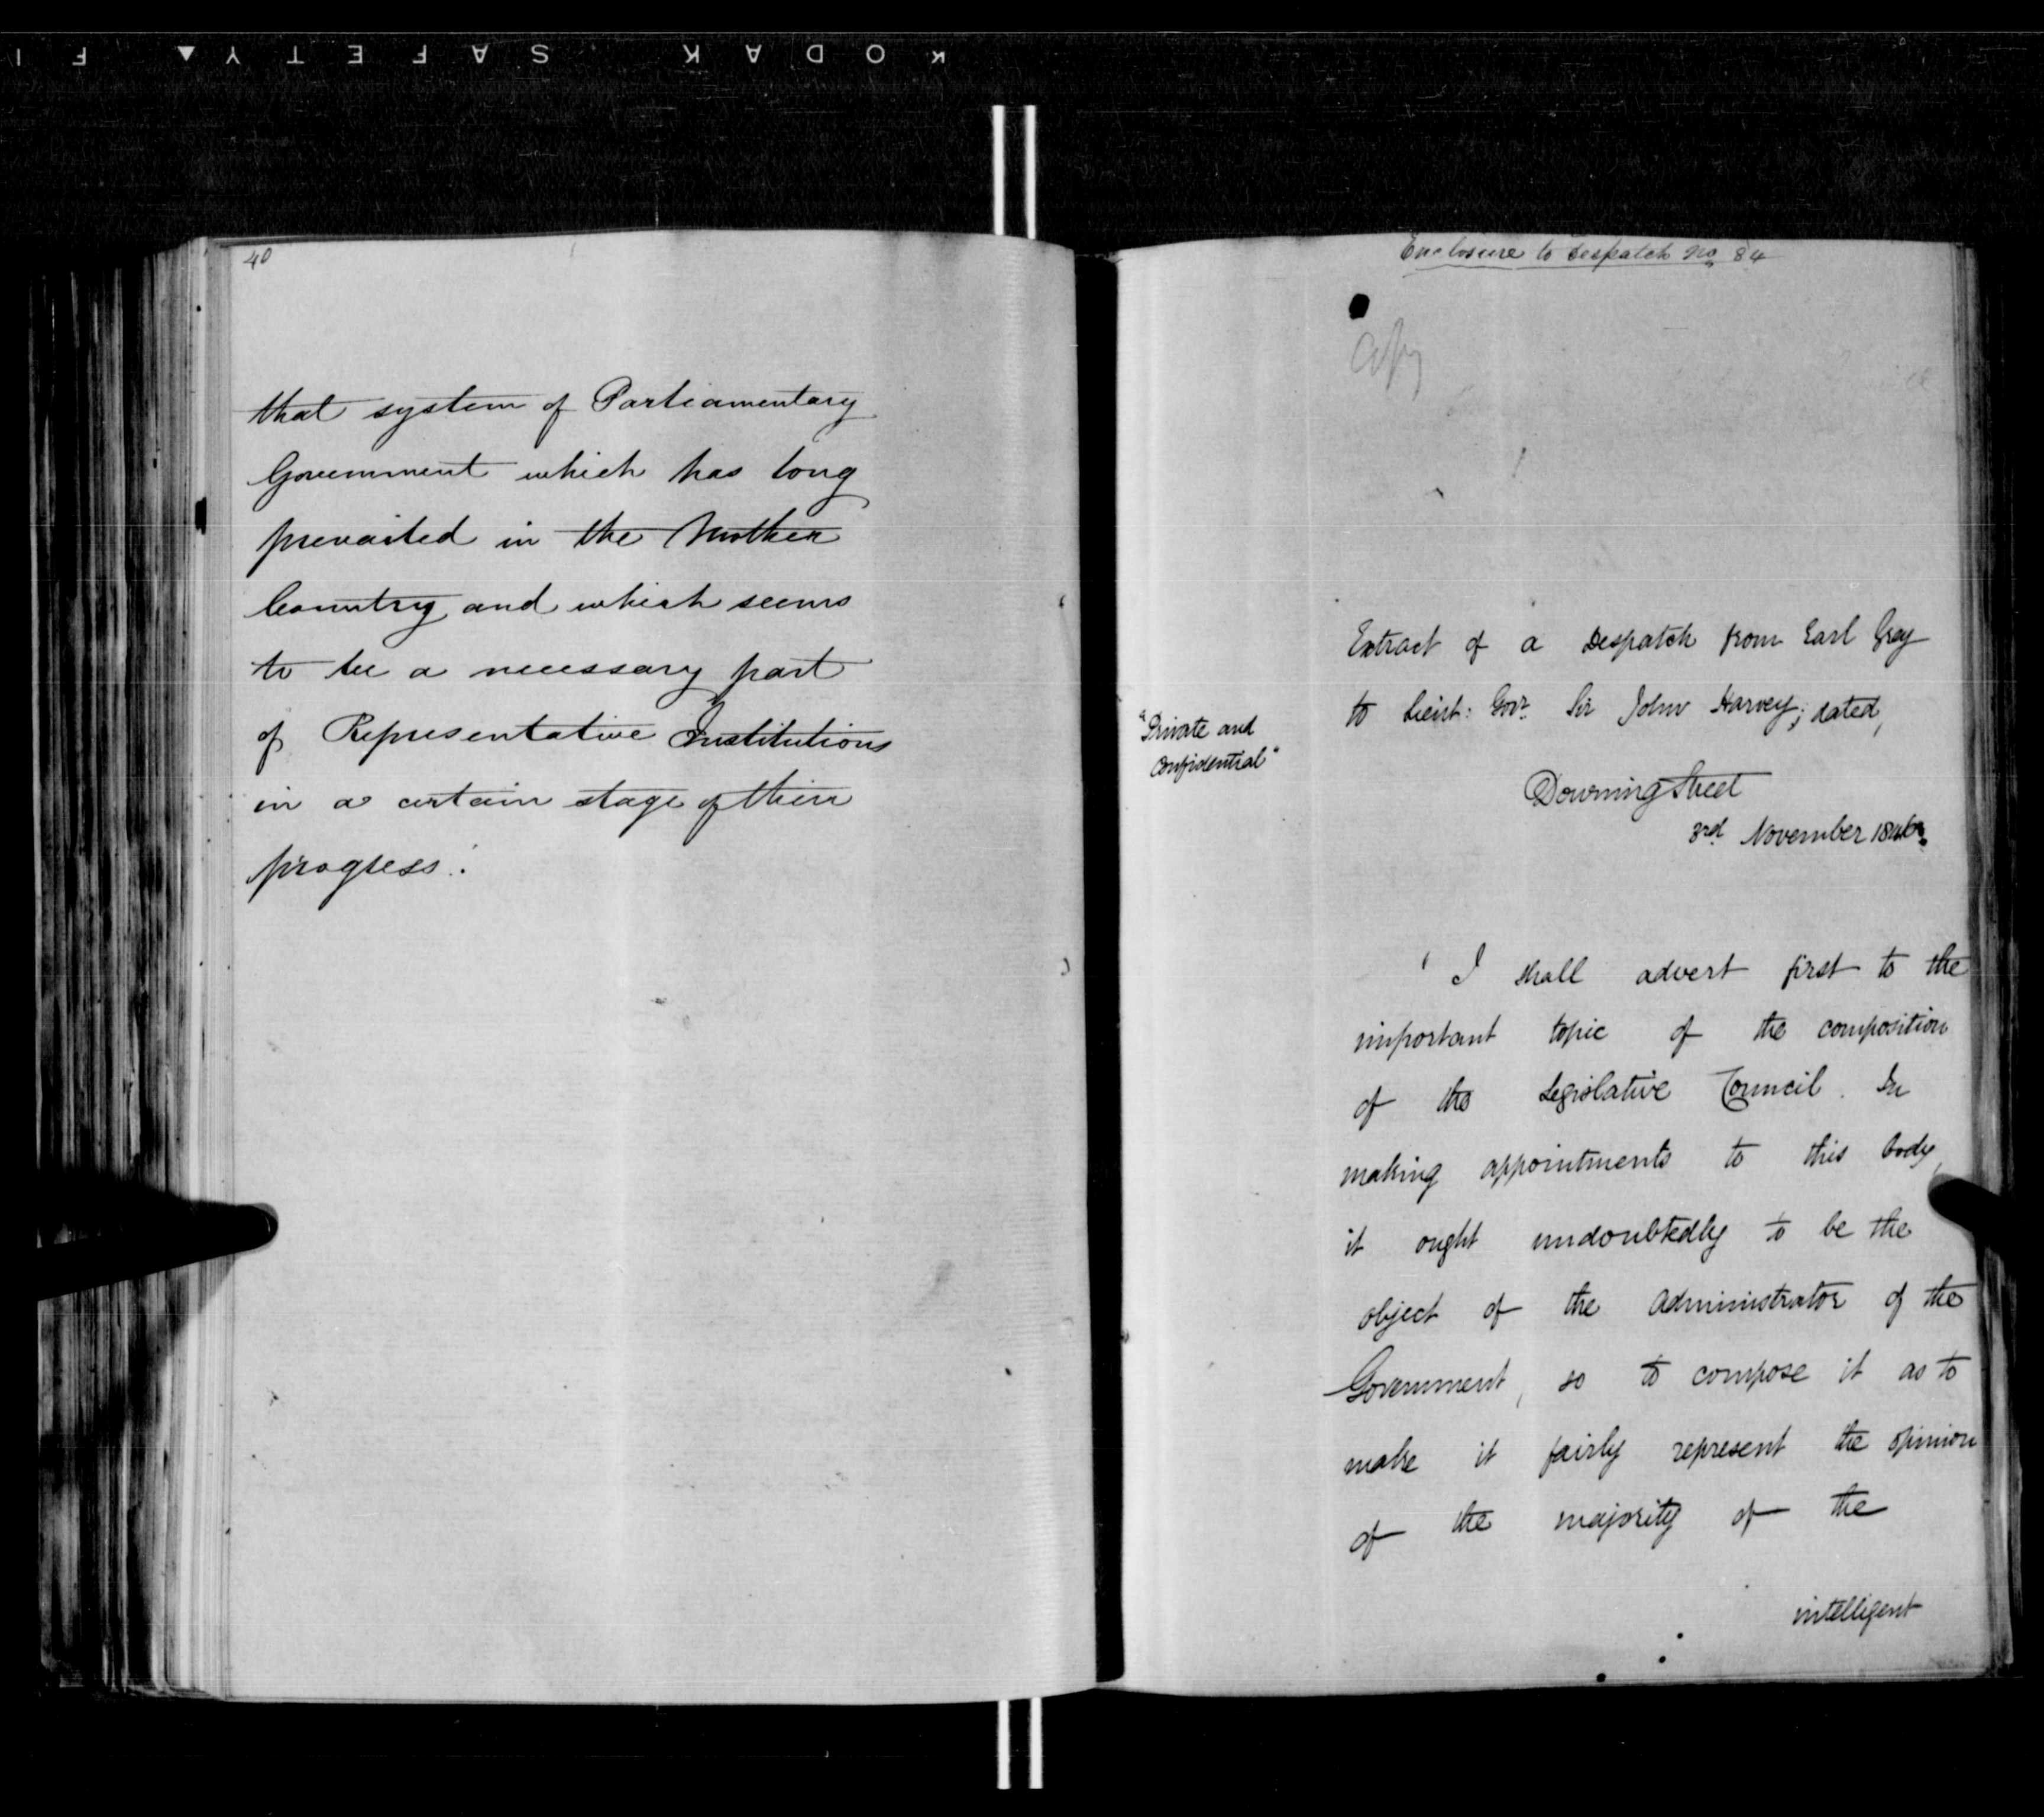 KODAK SAFETY ▲ F I
40
that system of Parliamentary
Government which has long
prevailed in the Mother
Country and which seems
to be a necessary part
of Representative Institutions
in a certain stage of their
progress.'
Enclosure to Despatch No 84
Copy
Extract of a Despatch from Earl Grey
to Lieut: Govr. Sir John Harvey; dated,
"Private and
Confidential"
Downing Street
3rd November 1846.
' I shall advert first to the
important topic of the composition
of the Legislative Council. In
making appointments to this body,
it ought undoubtedly to be the
object of the Administrator of the
Government, so to compose it as to
make it fairly represent the opinion
of the majority of the
intelligent